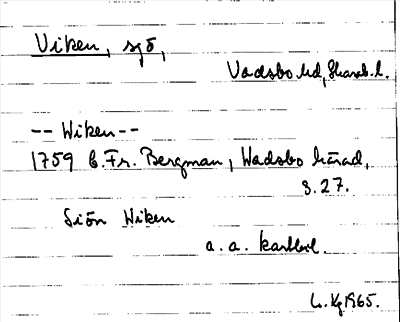 Viken, sjö,
Vadsbo hd, Skarab. l.
-- Wiken --
1759 C. Fr. Bergman, Wadsbo härad,
s. 27.
Siön Wiken
a. a. kartbl.
1965.